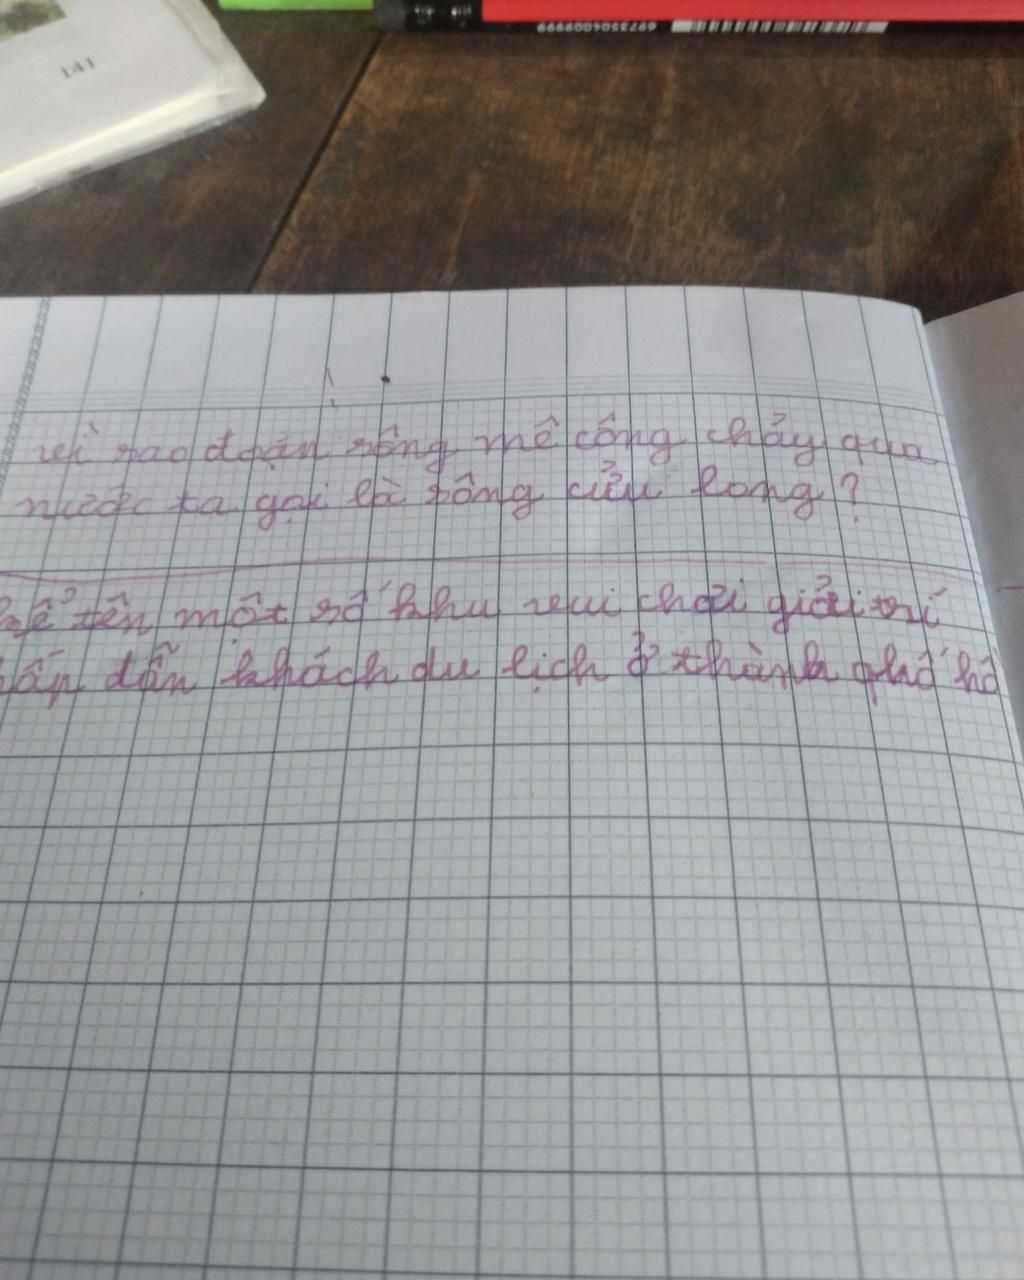 141
6973504009999
vì sao đoạn sông mê công chảy qua
nước ta gọi là sông cửu long?
kể tên một số khu vui chơi giải trí
hấp dẫn khách du lịch ở thành phố hồ